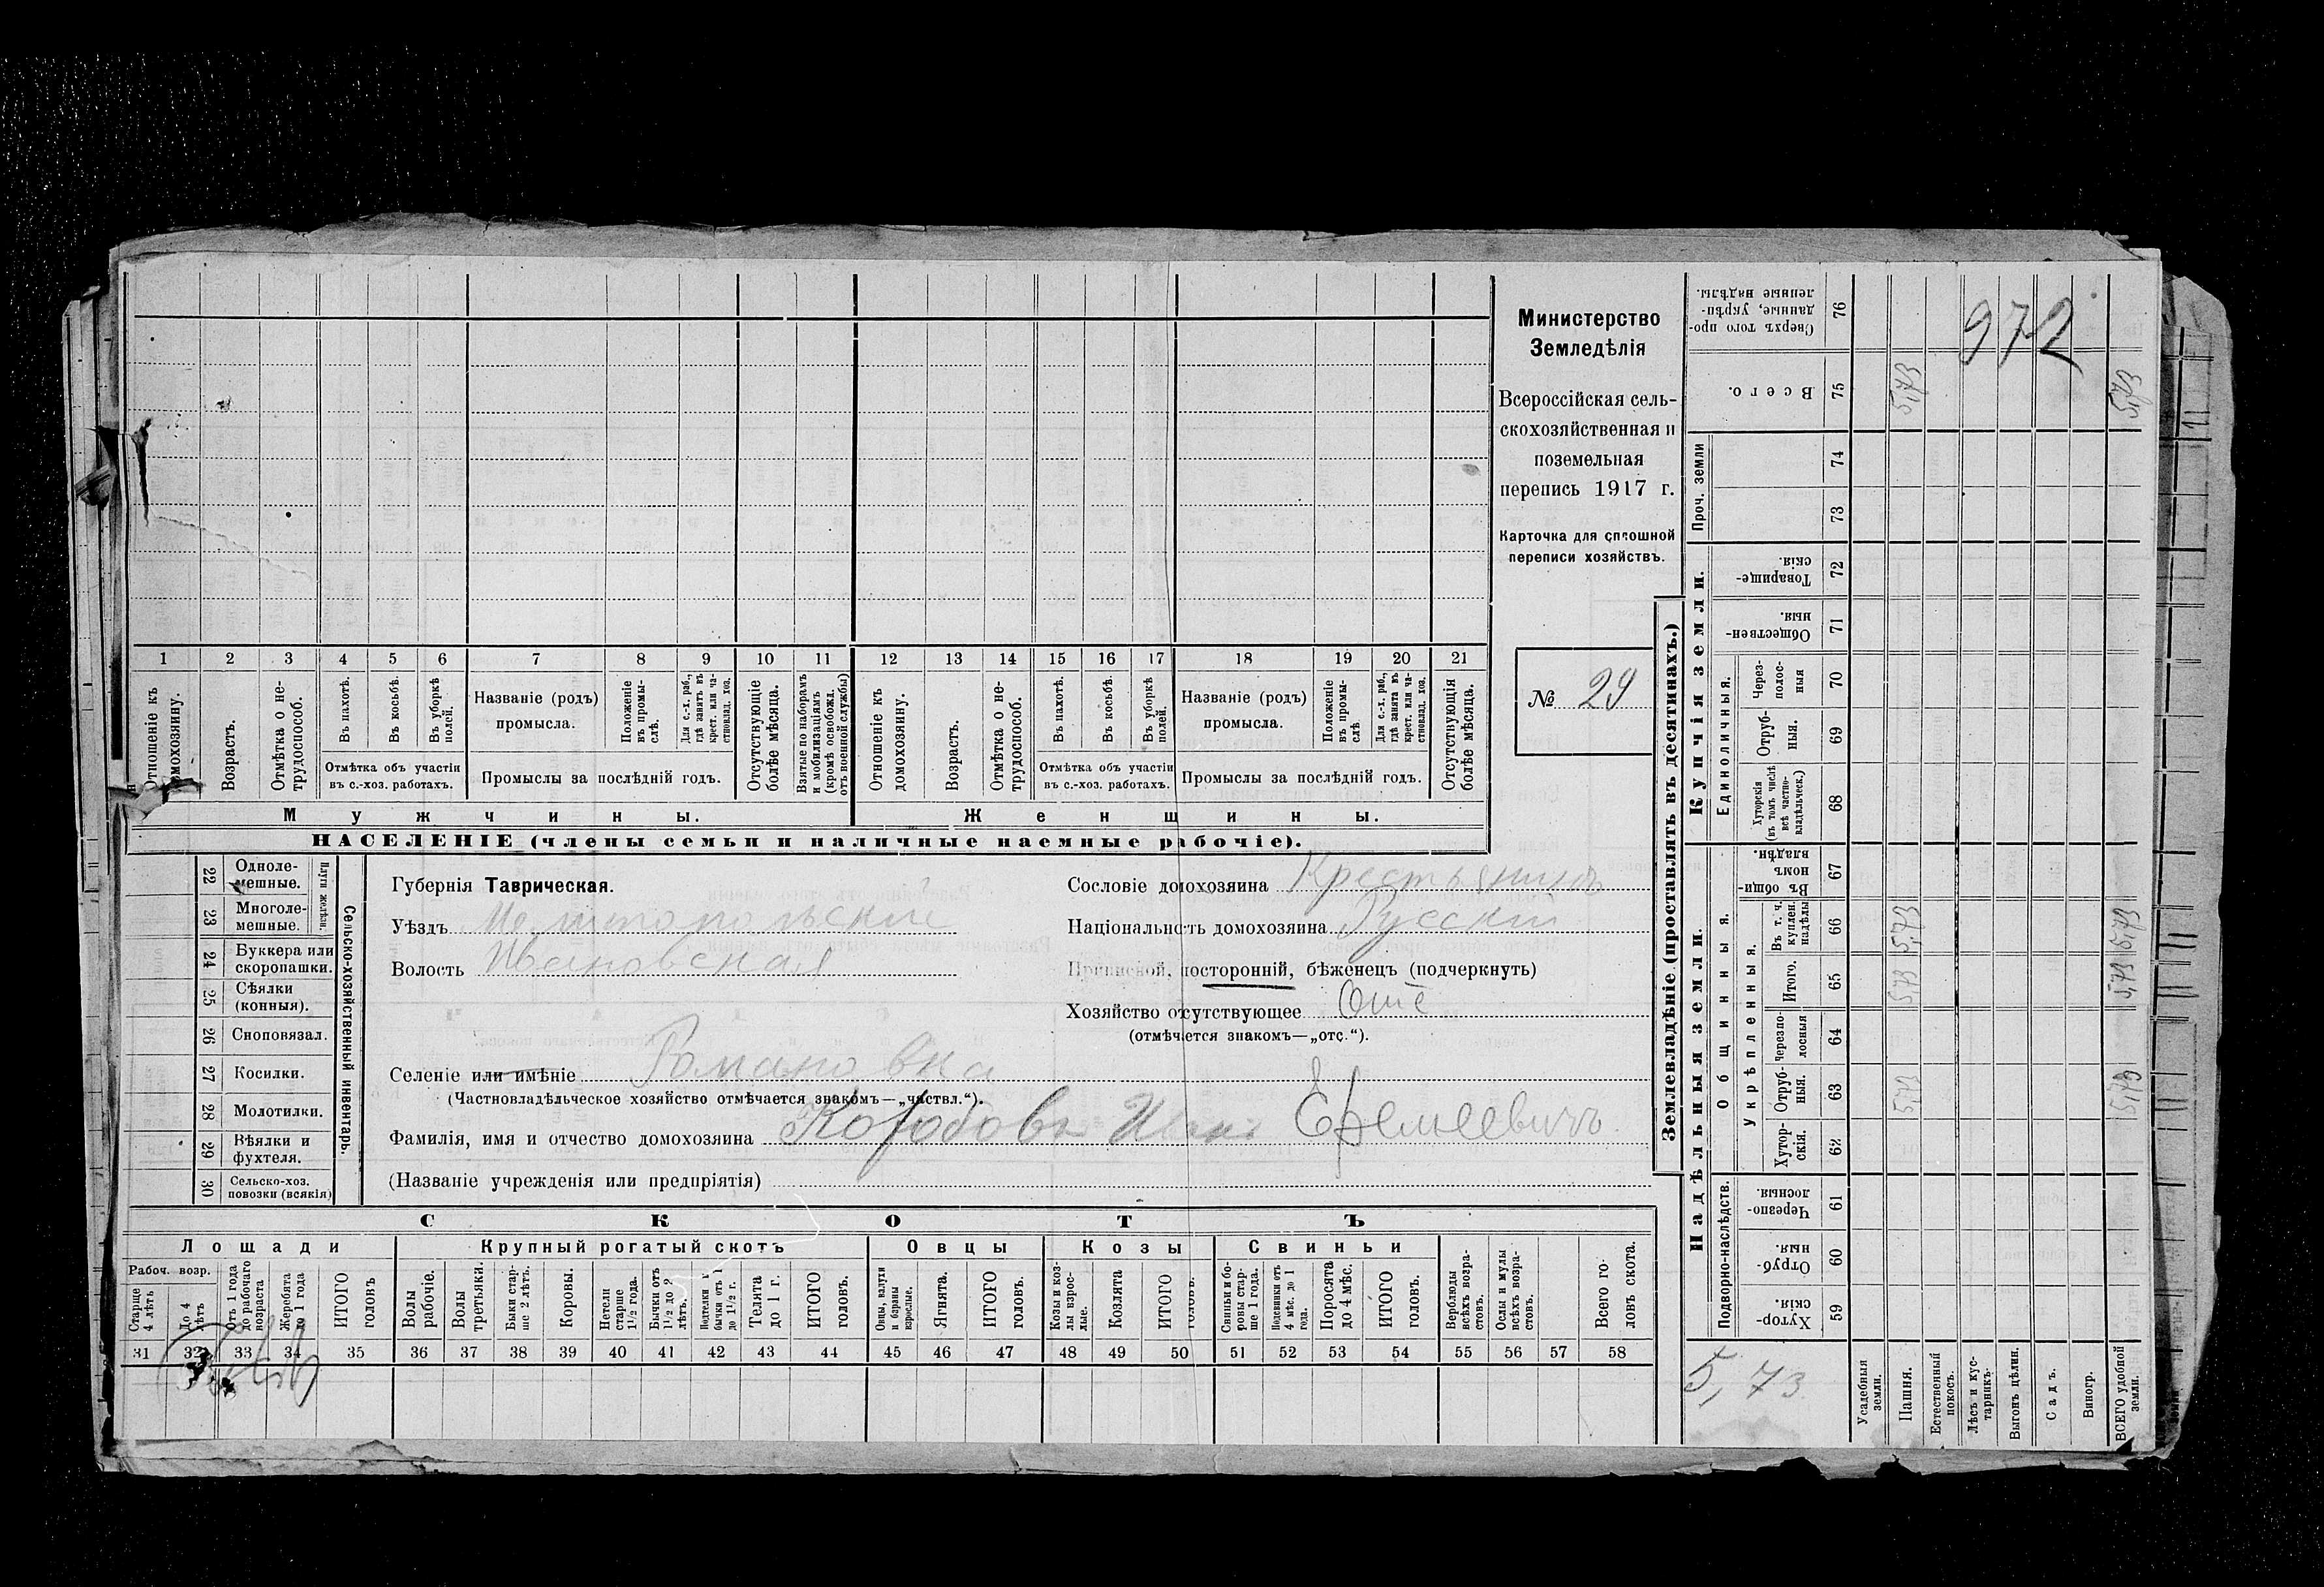 Министерство
Земледѣлія
Всероссійская сель-
скохозяйственная и
поземельная
перепись 1917 г.
Карточка для сплошной
переписи хозяйствъ.
№ 29
1 2 3 4 5 6 7 8 9 10 11 12 13 14 15 16 17 18 19 20 21
Отношеніе къ домохозяину.
Возрастъ.
Отмѣтка о не-трудоспособ.
Въ пахотѣ.
Въ косьбѣ.
Въ уборкѣ полей.
Отмѣтка объ участіи
въ с.-хоз. работахъ.
Названіе (родъ)
промысла.
Положеніе въ промы-слѣ.
Для с.-х. раб., гдѣ занятъ въ крест. или ча-стновлад. хоз.
Промыслы за послѣдній годъ.
Отсутствующіе болѣе мѣсяца.
Взятые по наборамъ и мобилизаціямъ (кромѣ освобожд. отъ военной службы)
Отношеніе къ домохозяину.
Возрастъ.
Отмѣтка о не-трудоспособ.
Въ пахотѣ.
Въ косьбѣ.
Въ уборкѣ полей.
Отмѣтка объ участіи
въ с.-хоз. работахъ.
Названіе (родъ)
промысла.
Положеніе въ промы-слѣ
Для с.-х. раб., гдѣ занятъ въ крест. или ча-стновлад. хоз.
Промыслы за послѣдній годъ.
Отсутствующія болѣе мѣсяца.
Мужчины. Женщины.
НАСЕЛЕНІЕ (члены семьи и наличные наемные рабочіе).
22 Одноле-мешные.
23 Многоле-мешные.
Плуги желѣзн.
24 Буккера или скоропашки.
25 Сѣялки (конныя).
26 Сноповязал.
27 Косилки.
28 Молотилки.
29 Вѣялки и фухтеля.
30 Сельско-хоз. повозки (всякія)
Сельско-хозяйственный инвентарь.
Губернія Таврическая.
Уѣздъ Мелитопольскій
Волость Ивановская
Сословіе домохозяина Крестьянинъ
Національность домохозяина Русскій
Приписной, посторонній, бѣженецъ (подчеркнуть)
Хозяйство отсутствующее Отс
(отмѣчается знакомъ—„отс.“).
Селеніе или имѣніе Романовка
(Частновладѣльческое хозяйство отмѣчается знакомъ—„частвл.“).
Фамилія, имя и отчество домохозяина Коробовъ Иванъ Ефимьевичъ
(Названіе учрежденія или предпріятія)
СКОТЪ
Лошади Крупный рогатый скотъ Овцы Козы Свиньи
Рабоч. возр.
Старше 4 лѣтъ
До 4 лѣтъ
Отъ 1 года до рабочаго возраста
Жеребята до 1 года
ИТОГО головъ
Волы рабочіе.
Волы третьяки.
Быки стар-ше 2 лѣтъ.
Коровы.
Нетели старше 1½ года.
Бычки отъ 1½ до 2 лѣтъ.
Подтелки и бычки отъ 1 до 1½ г.
Телята до 1 г.
ИТОГО головъ.
Овцы, валухи и бараны взрослые.
Ягнята.
ИТОГО головъ.
Козы и коз-лы взрос-лые.
Козлята
ИТОГО головъ.
Свиньи и бо-ровы стар-ше 1 года.
Подсвинки отъ 4 мѣс. до 1 года.
Поросята до 4 мѣс.
ИТОГО головъ.
Верблюды всѣхъ возра-стовъ.
Ослы и мулы всѣхъ возра-стовъ.
Всего го-ловъ скота.
31 32 33 34 35 36 37 38 39 40 41 42 43 44 45 46 47 48 49 50 51 52 53 54 55 56 57 58
Землевладѣніе (проставлять въ десятинахъ.)
Надѣльныя земли.
Купчія земли.
Проч. земли
Подворно-наслѣдств.
Общинныя.
Укрѣпленныя.
Единоличныя.
Сверхъ того про-данные, укрѣп-ленные надѣлы. 76
Всего. 75 5,73 5,73
74
73
Товарище-скія. 72
Обществен-ныя. 71
Через-полос-ныя 70
Отруб-ныя. 69
Хуторскія (въ томъ числѣ всѣ частно-владѣльческ.) 68
Въ общи-номъ владѣн. 67
Въ т. ч. куплен. надѣлы 66 5,73 5,73
Итого. 65 5,73 5,73
Черезпо-лосныя 64
Отруб-ныя. 63 5,73 5,73
Хутор-скія. 62
Черезпо-лосныя 61
Отруб-ныя. 60
Хутор-скія. 59
972
5,73
Усадебныя земли.
Пашня.
Естественный покосъ.
Лѣсъ и кус-тарникъ.
Выгонъ цѣлин.
Садъ.
Виногр.
ВСЕГО удобной земли.